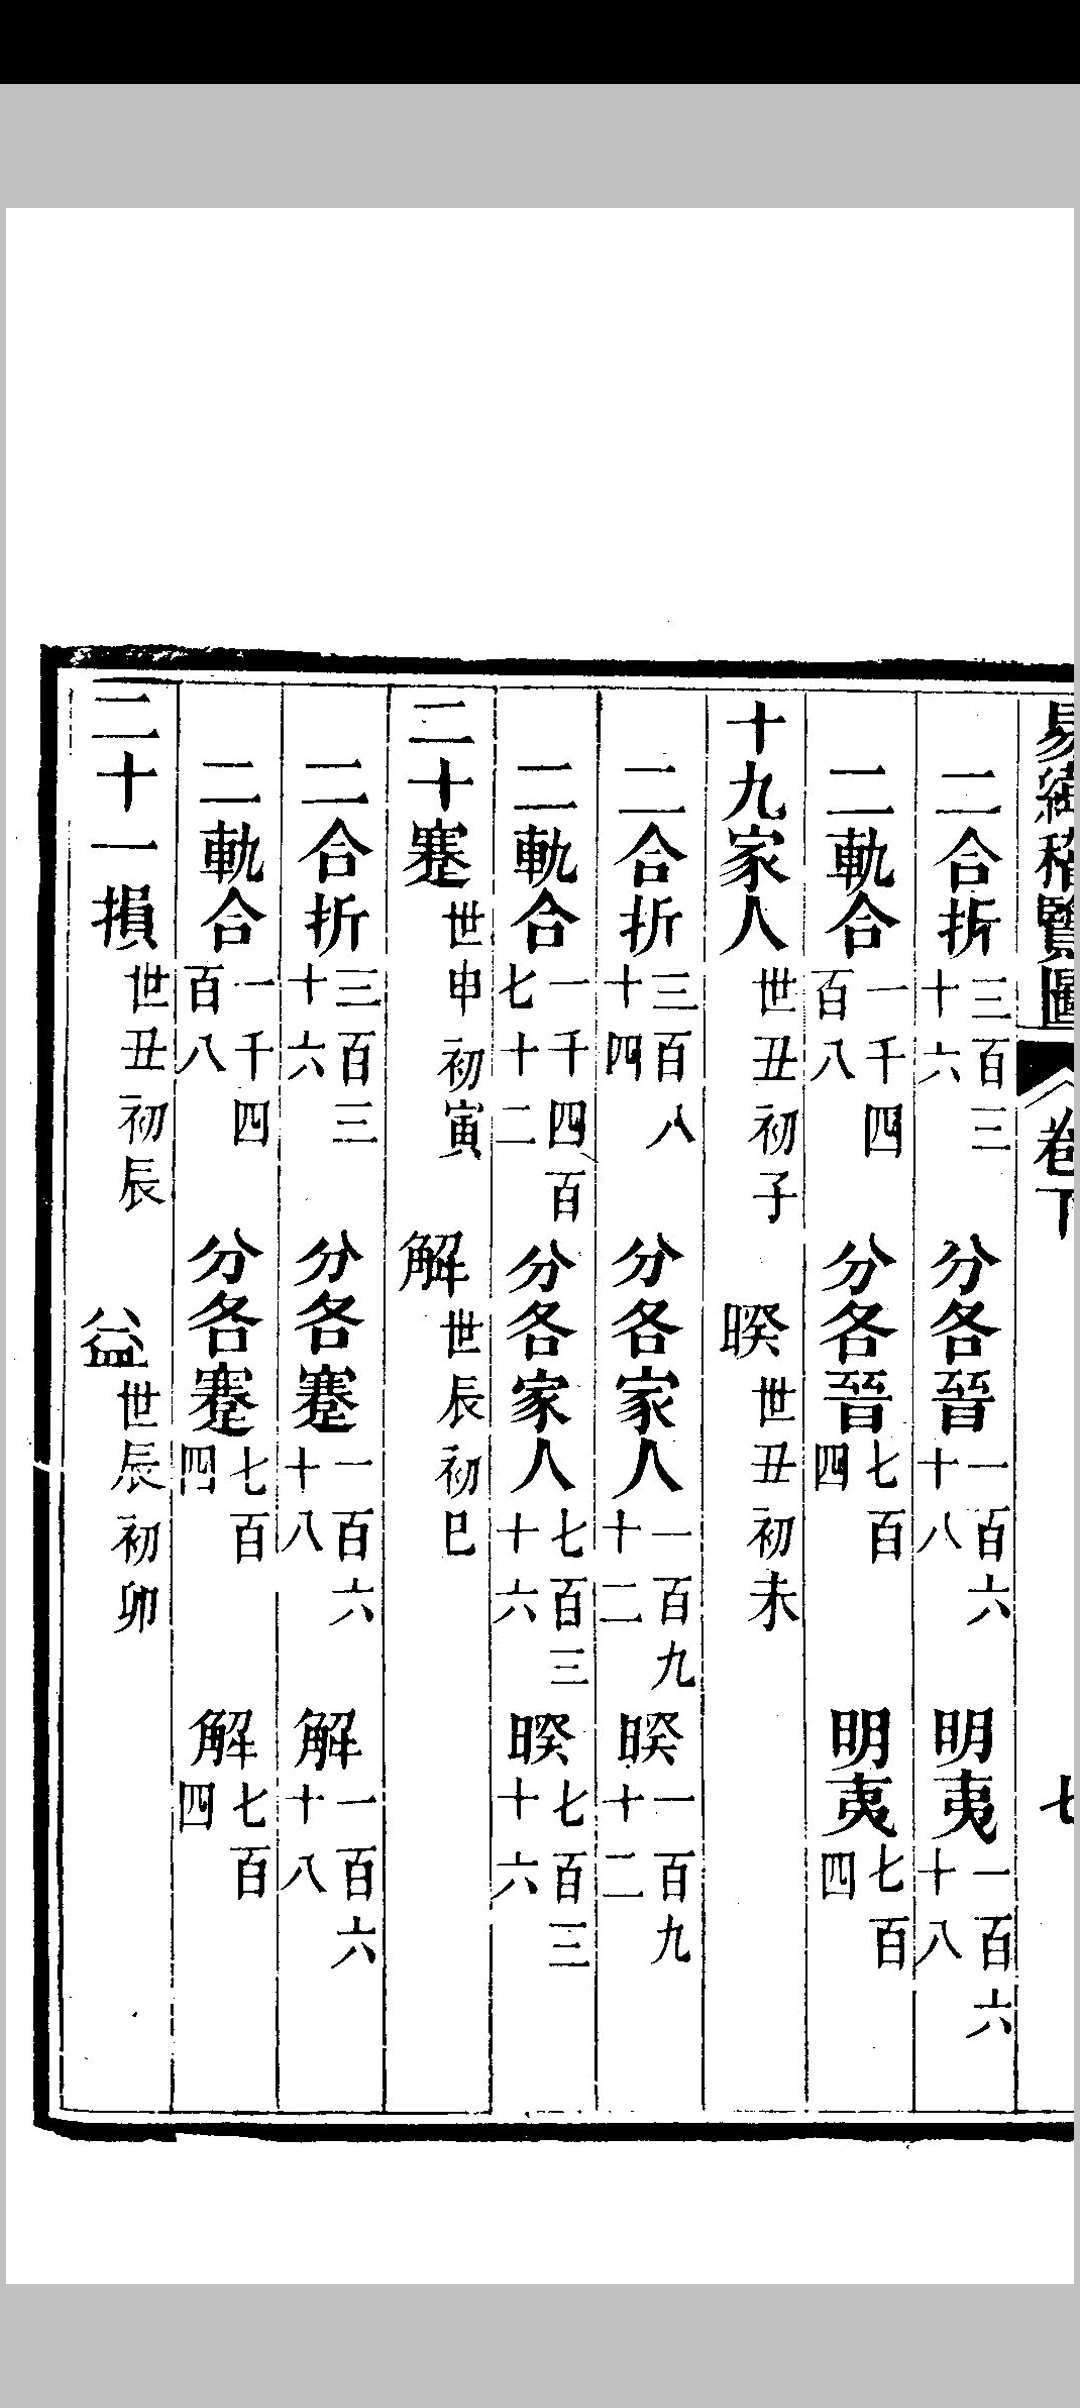 易緯稽覽圖 卷下 七
二合折三百三十六 分各晉一百六十八 明夷一百六十八
二軌合一千四百八 分各晉七百四 明夷七百四
十九家人世丑初子 睽世丑初未
二合折三百八十四 分各家人一百九十二 睽一百九十二
二軌合一千四百七十二 分各家人七百三十六 睽七百三十六
二十蹇世申初寅 解世辰初巳
二合折三百三十六 分各蹇一百六十八 解一百六十八
二軌合一千四百八 分各蹇七百四 解七百四
二十一損世丑初辰 益世辰初卯